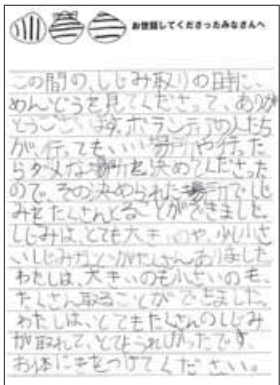 お世話してくださったみなさんへ
この間の、しじみ取りの時に、
めんどうを見てくださって、あり
とうございます。ボランティアの人たち
が、行っても、いい場所や行った
らダメな場所を決めてくださった
ので、その決められた場所でしじ
みをたくさんとることができました。
しじみは、とても大きいのや、少し小さ
いしじみがたくさんありました
わたしは、大きいのも小さいのも、
たくさん取ることができました。
わたしは、とてもたくさんのしじみ
が取れて、とてもうれしかったです
お体に気をつけてください。